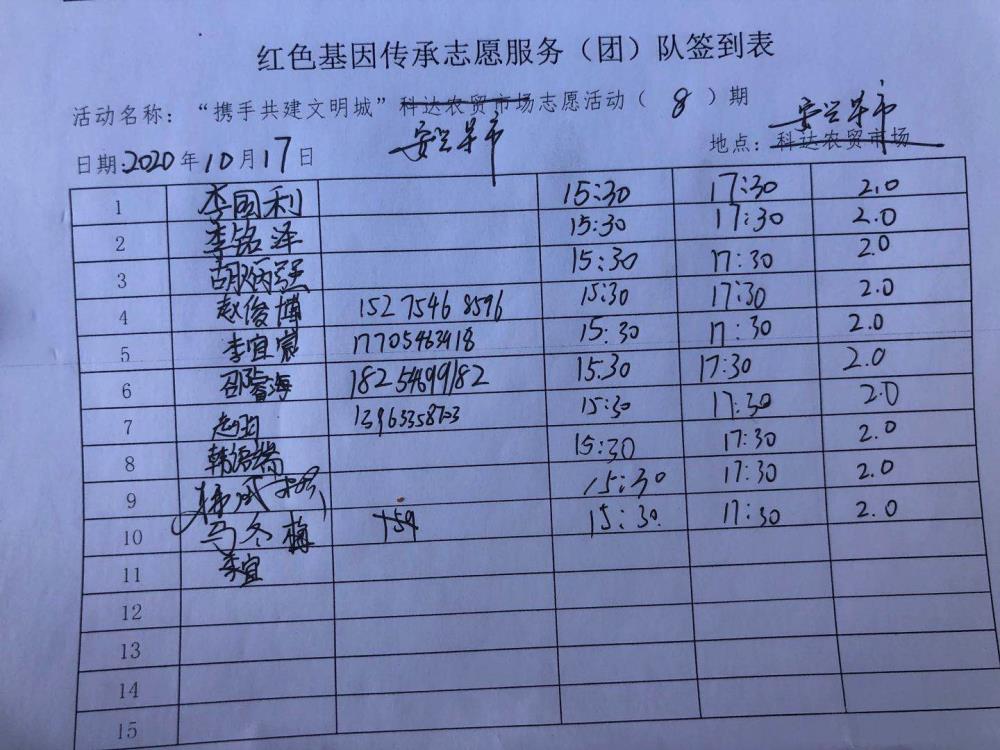 红色基因传承志愿服务（团）队签到表
活动名称：“携手共建文明城”科达农贸市场志愿活动（ 8 ）期
安兴早市
安兴早市
日期:2020年10月17日
地点：科达农贸市场
1 李国利 15:30 17:30 2.0
2 李铭泽 15:30 17:30 2.0
3 胡炳强 15:30 17:30 2.0
4 赵俊博 152 7546 8596 15:30 17:30 2.0
5 李宜宸 17705463918 15:30 17:30 2.0
6 邵睿海 18254699182 15:30 17:30 2.0
7 13963358703 15:30 17:30 2.0
8 韩语嫣 15:30 17:30 2.0
9 15:30 17:30 2.0
10 马冬梅 159 15:30 17:30 2.0
11 李宜
12
13
14
15